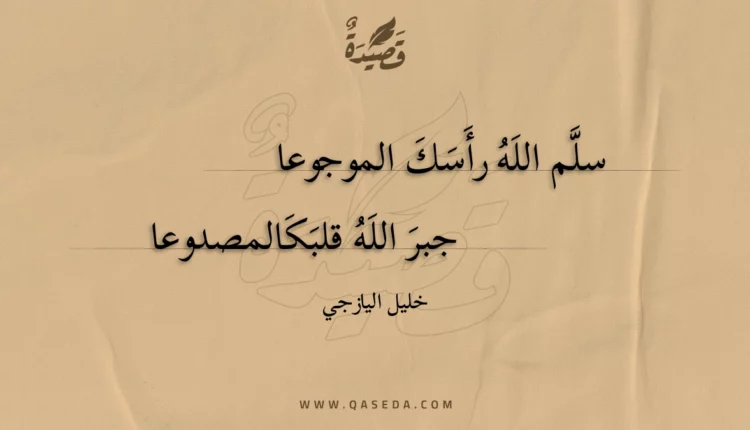 قَصِيْدَةٌ
سلَّم اللَهُ رأَسَكَ الموجوعا
جبرَ اللَهُ قلبَكَالمصدوعا
خليل اليازجي
WWW.QASEDA.COM